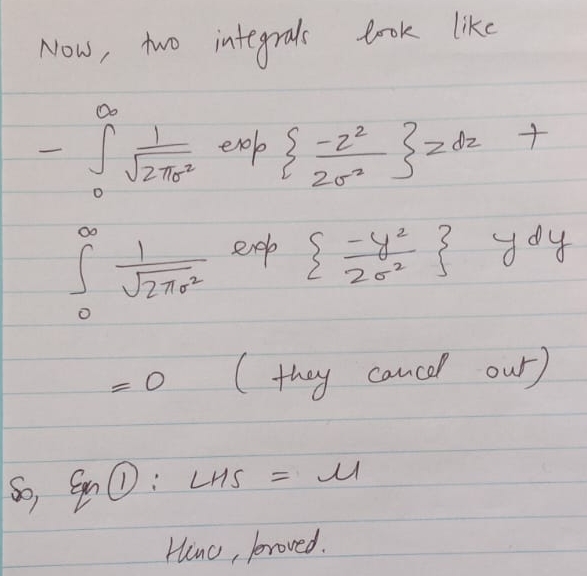 Now, two integrals look like
- ∫₀^∞ 1/√2πσ² exp { -z²/2σ² } z dz +
∫₀^∞ 1/√2πσ² exp { -y²/2σ² } y dy
= 0 ( they cancel out)
So, Eqn ①: LHS = μ
Hence, proved.